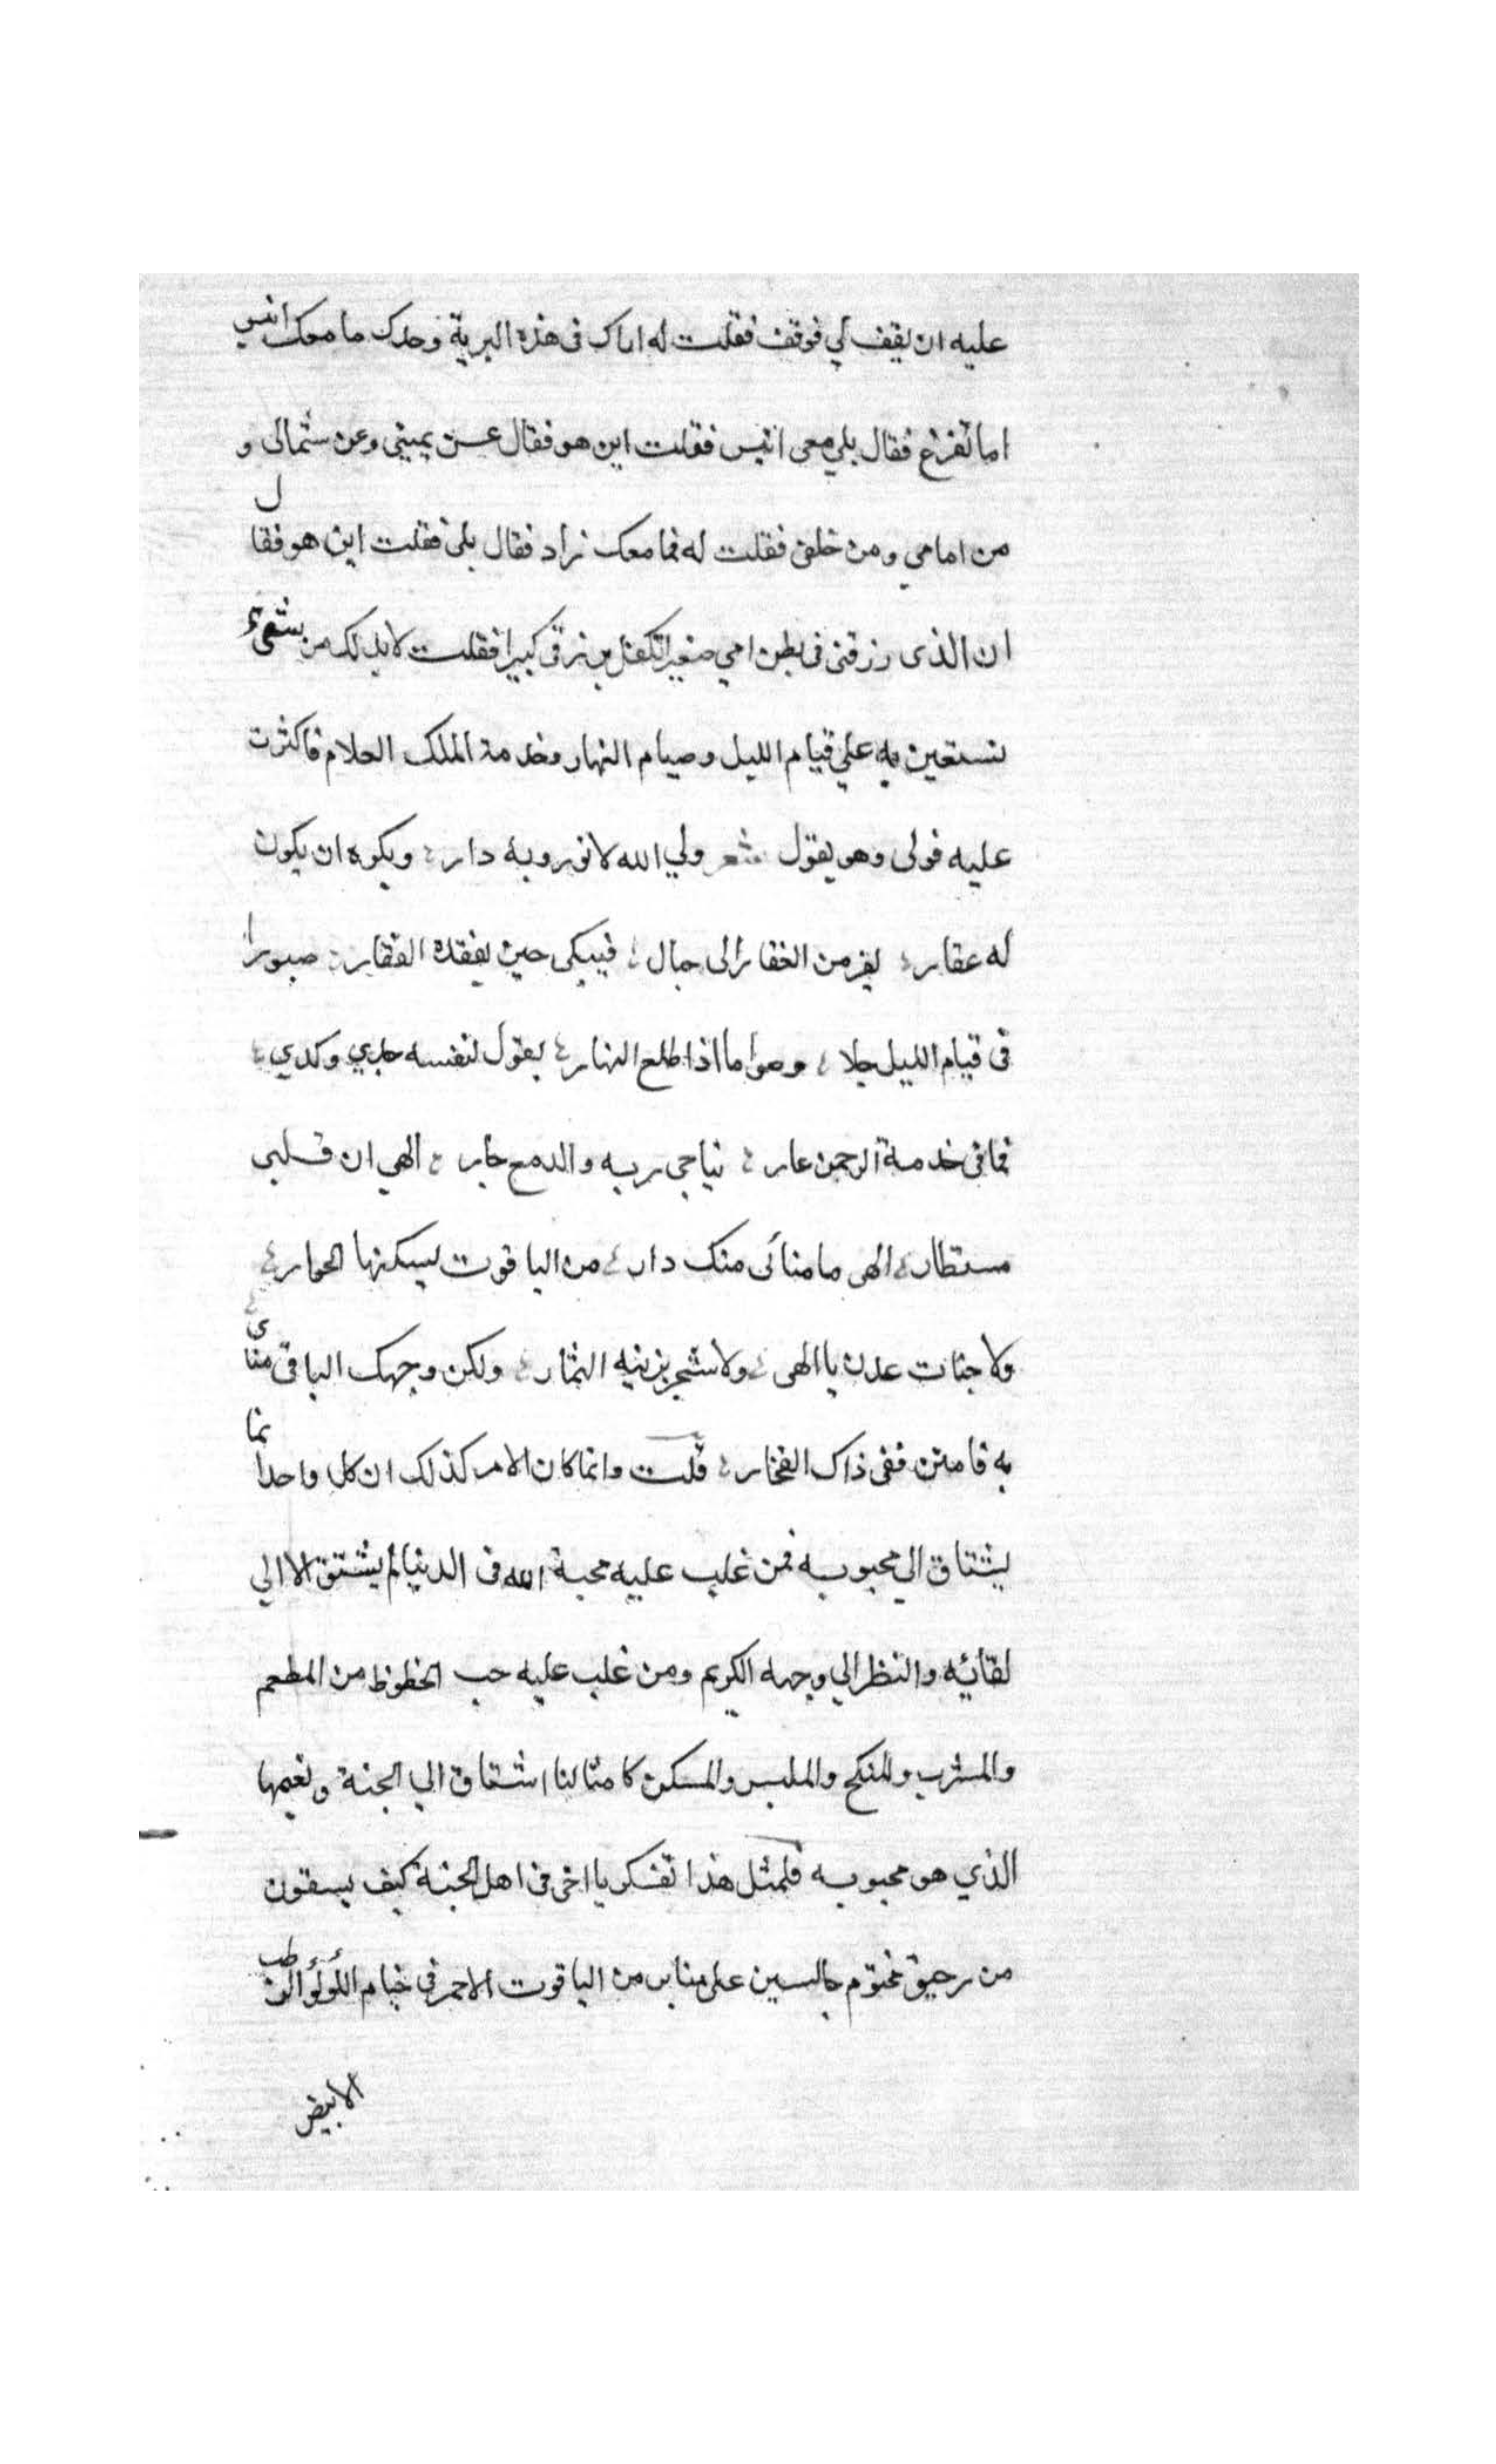 عليه ان يقف لي فوقف فقلت له اراك فى هذه البرية وحدك ما معك انيس
اما تفزع فقال بلي معى انيس فقلت اين هو فقال عن يمينى وعن شمالى و
من امامي ومن خلفى فقلت له فما معك زاد فقال بلى فقلت اين هو فقال
ان الذى رزقنى فى بطن امي صغيرا تكفل برزقى كبيرا فقلت لابد لك من شىء
تستعين به علي قيام الليل وصيام النهار وخدمة الملك العلام فاكثرت
عليه فولى وهو يقول شعر ولي الله لا تورويه دار ؛ ويكره ان يكون
له عقار ؛ يفر من القفار الى جبال ؛ فيبكى حين يفقده القفار ؛ صبورا
فى قيام الليل جلا ؛ وصواما اذا طلع النهار ؛ يقول لنفسه جدي وكدي ؛
فما فى خدمة الرحمن عار ؛ يناجى ربه والدمع جار ؛ الهي ان قلبى
مستطار ؛ الهى ما منائى منك دار ؛ من الياقوت يسكنها الحوار ؛
ولا جنات عدن يا الهى ؛ ولا شجر يزينه الثمار ؛ ولكن وجهك الباقى منائى
به فامنن ففى ذاك الفخار ؛ قلت وانما كان الامر كذلك ان كل واحد انما
يشتاق الي محبوبه فمن غلب عليه محبة الله فى الدنيا لم يشتق الا الي
لقائيه والنظر الي وجهه الكريم ومن غلب عليه حب الحظوظ من المطعم
والمشرب والمنكح والملبس والمسكن كامثالنا اشتاق الي الجنة ونعيمها
الذي هو محبوبه فلمثل هذا تفكر يا اخى فى اهل الجنة كيف يسقون
من رحيق مختوم جالسين على منابر من الياقوت الاحمر فى خيام اللؤلؤ الرطب
الابيض